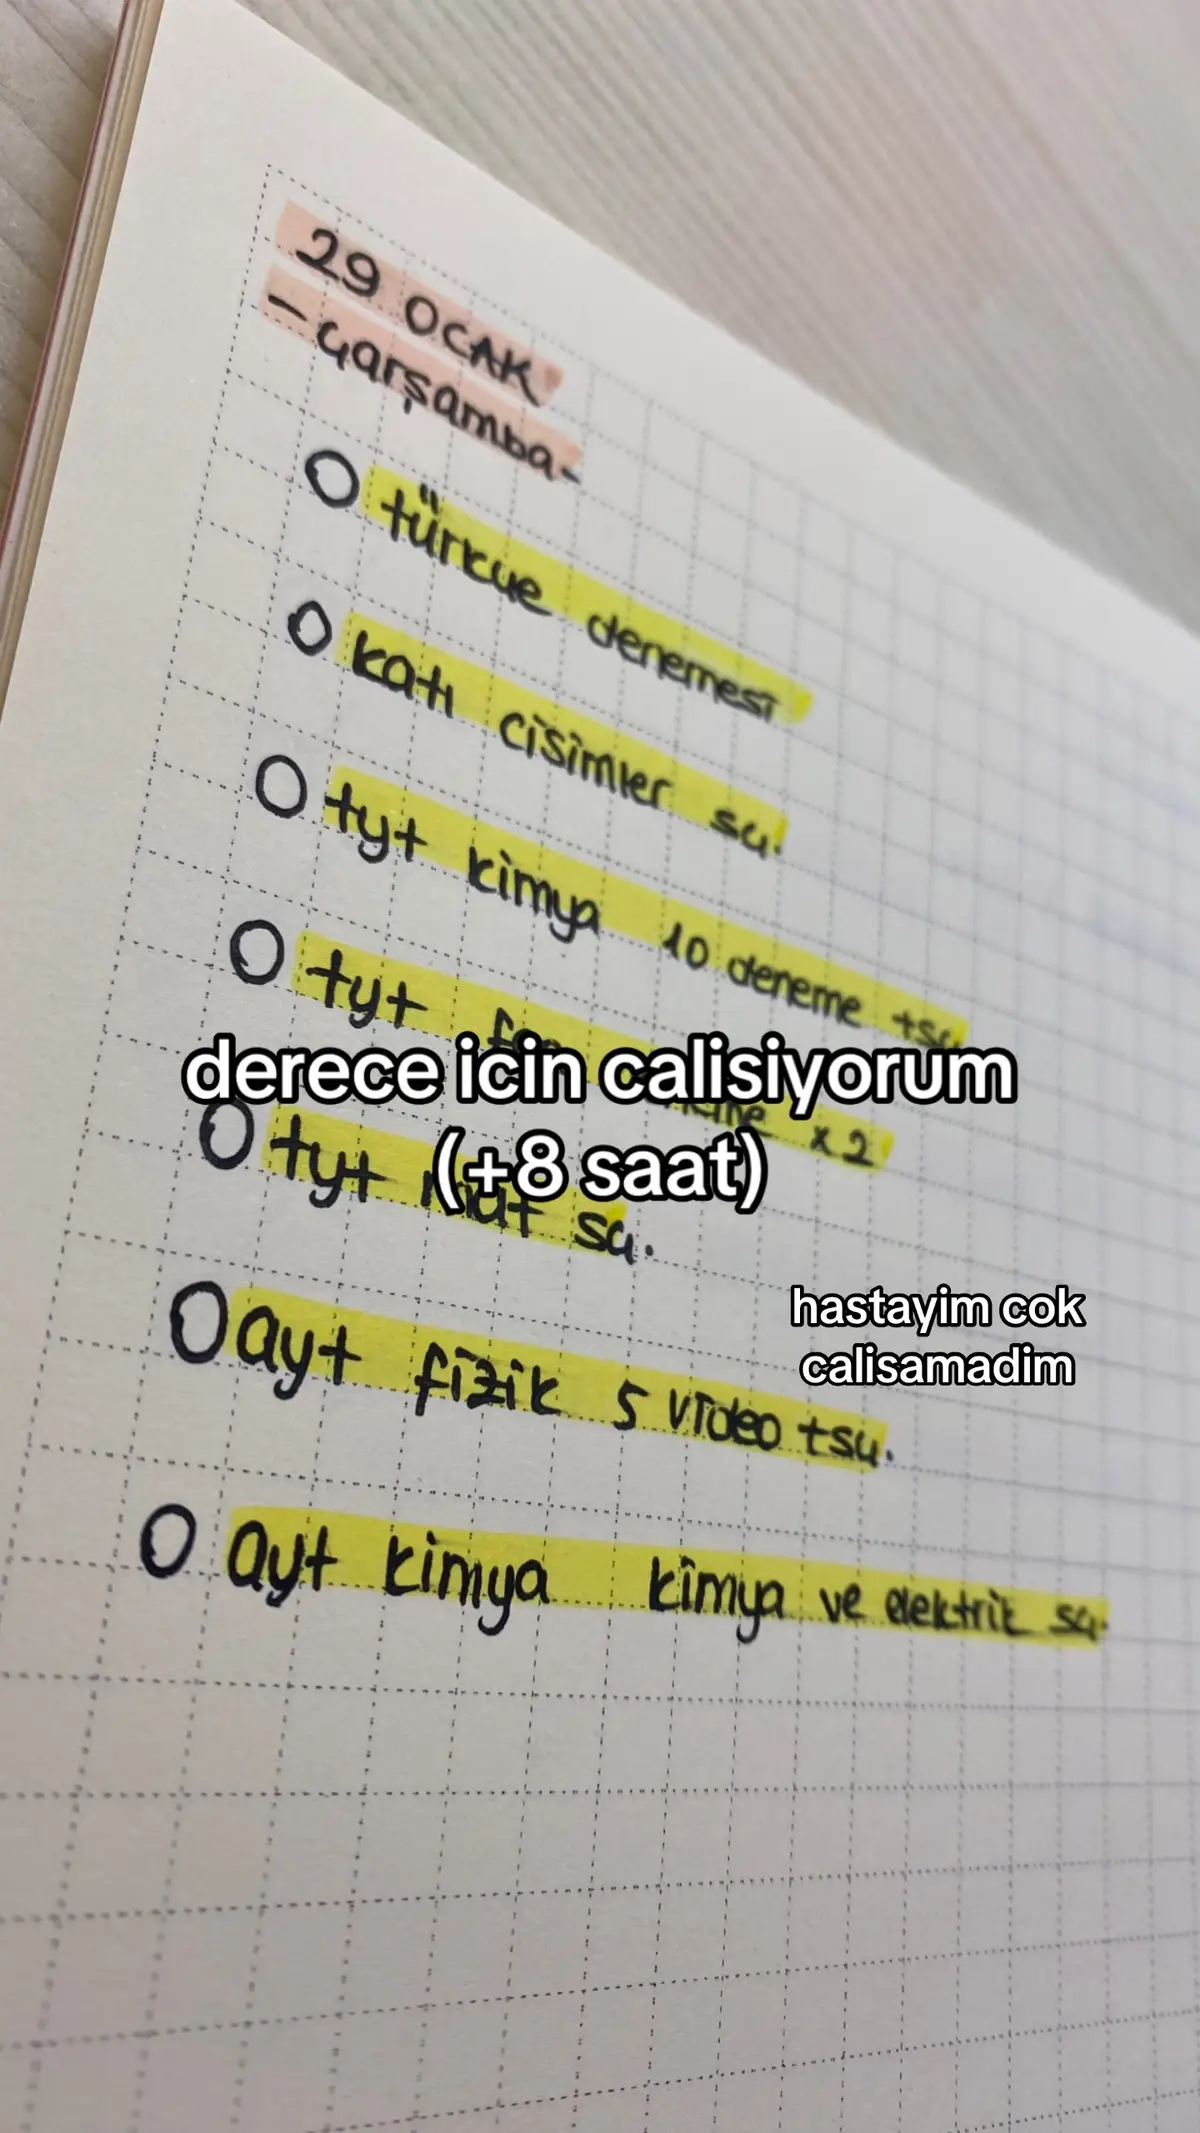 29 OCAK
-çarşamba-
türkçe denemesi
katı cisimler sç.
tyt kimya 10 deneme +sç
tyt x2
derece icin calisiyorum
(+8 saat)
tyt mat sç.
hastayim cok
calisamadim
ayt fizik 5 video +sç.
ayt kimya kimya ve elektrik sç.